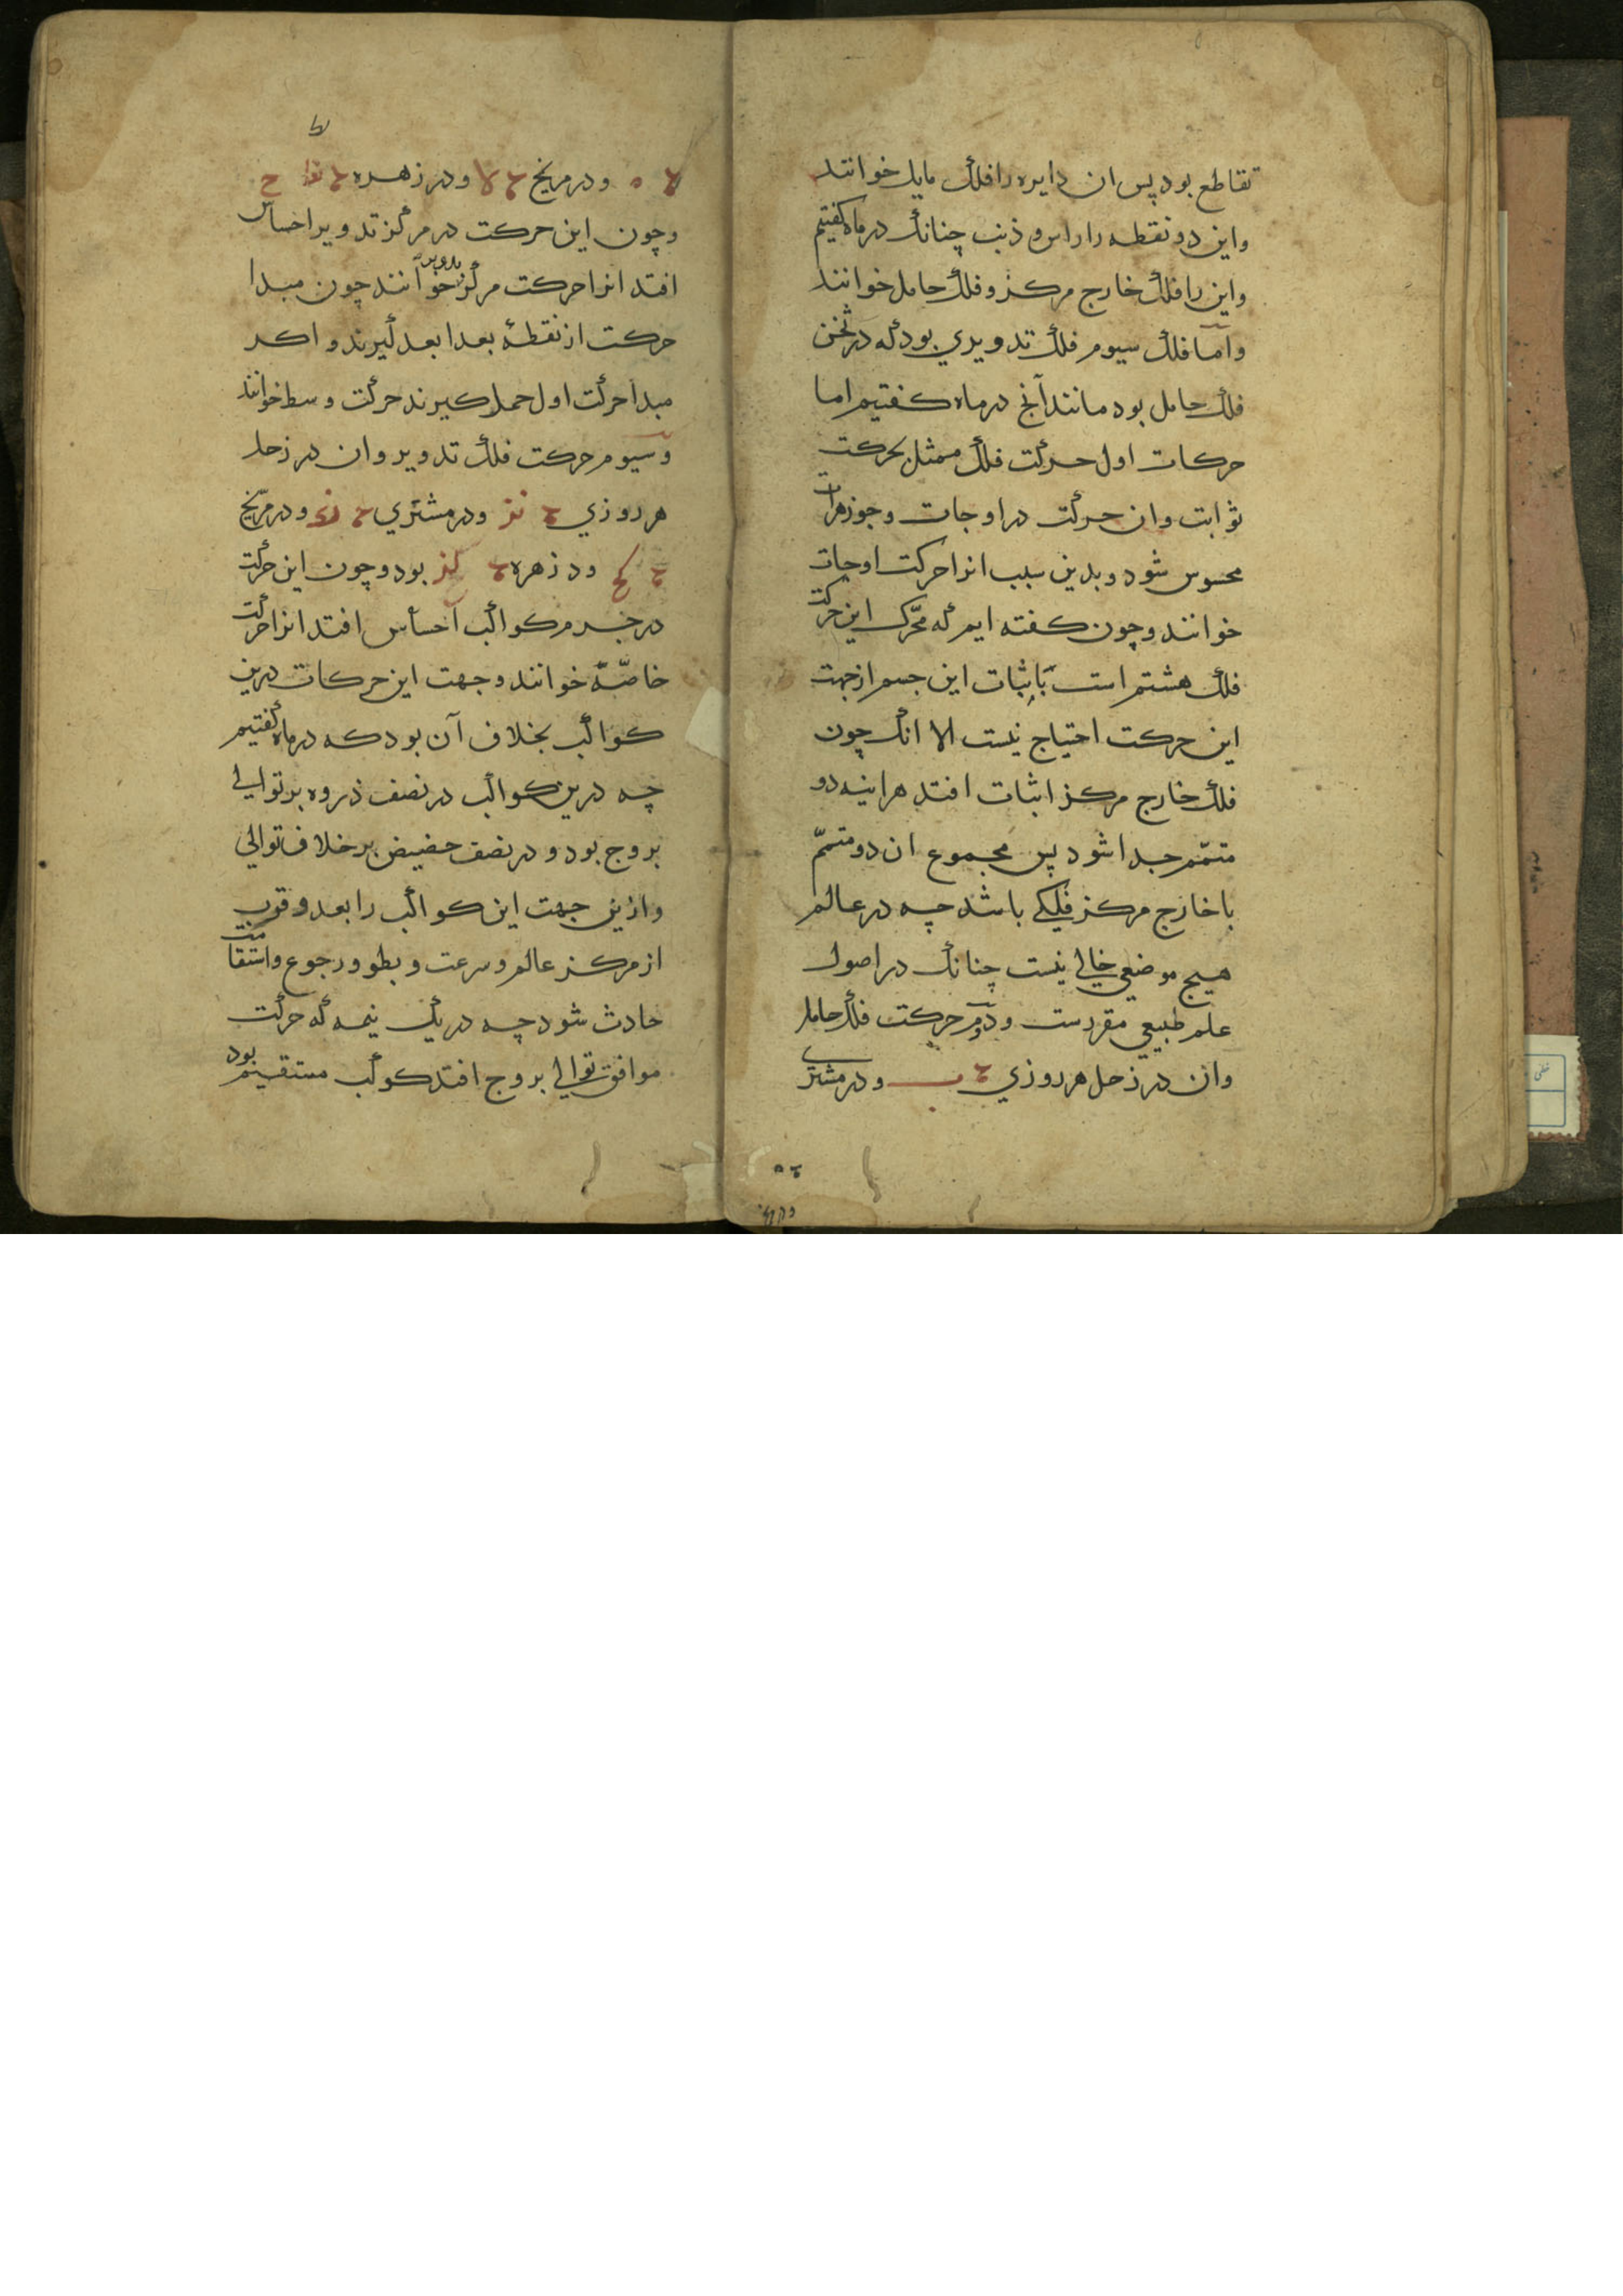 تقاطع بود پس ان دایره را فلک مایل خوانند
واین دو نقطه را راس و ذنب چنانک در ماه کفتیم
واین را فلک خارج مرکز و فلک حامل خوانند
وامّا فلک سیوم فلک تدویری بود که در ثخن
فلک حامل بود مانند آنج در ماه کفتیم اما
حرکات اول حرکت فلک ممثل بحرکت
ثوابت وان حرکت در اوجات وجوزهرات
محسوس شود و بدین سبب انرا حرکت اوجات
خوانند و چون کفته ایم که محرّک این حرکت
فلک هشتم است باثبات این جسم از جهت
این حرکت احتیاج نیست الا انک چون
فلک خارج مرکز اثبات افتد هراینه دو
متمّم جدا شود پس مجموع ان دو متمّم
با خارج مرکز فلکی باشد چه در عالم
هیچ موضعی خالی نیست چنانک در اصول
علم طبیعی مقررست ودوّم حرکت فلک حامل
وان در زحل هر روزی ب ودر مشتری
ه ودر مریخ لا ودر زهره نط ح
وچون این حرکت در مرکز تدویر احساس
افتد انرا حرکت مرکز تدویر خوانند چون مبدا
حرکت از نقطهٔ بعد ابعد کیرند و اکر
مبدا حرکت اول حمل کیرند حرکت وسط خوانند
وسیوم حرکت فلک تدویر وان در زحل
هر روزی نز ودر مشتری ند ودر مرّیخ
کح ود زهره لز بود وچون این حرکت
در جرم کواکب احساس افتد انرا حرکت
خاصّه خوانند وجهت این حرکات درین
کواکب بخلاف آن بود که در ماه کفتیم
چه درین کواکب در نصف ذروه بر توالی
بروج بود و در نصف حضیض بر خلاف توالی
وازین جهت این کواکب را بعد وقرب
از مرکز عالم وسرعت و بطو ورجوع واستقامت
حادث شود چه در یک نیمه که حرکت
موافق توالی بروج افتد کوکب مستقیم بود